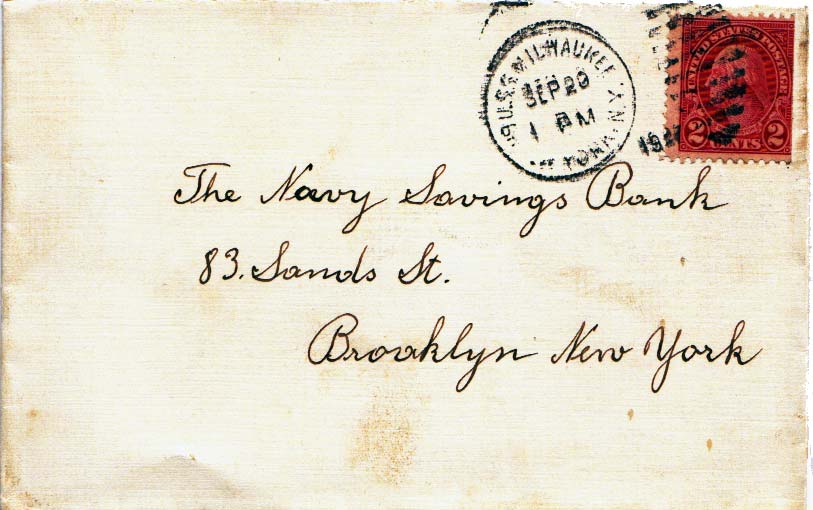 U.S.S. MILWAUKEE
SEP 20
1 PM
N.Y.
YORK
UNITED STATES POSTAGE
2 CENTS 2
The Navy Savings Bank
83. Sands St.
Brooklyn New York